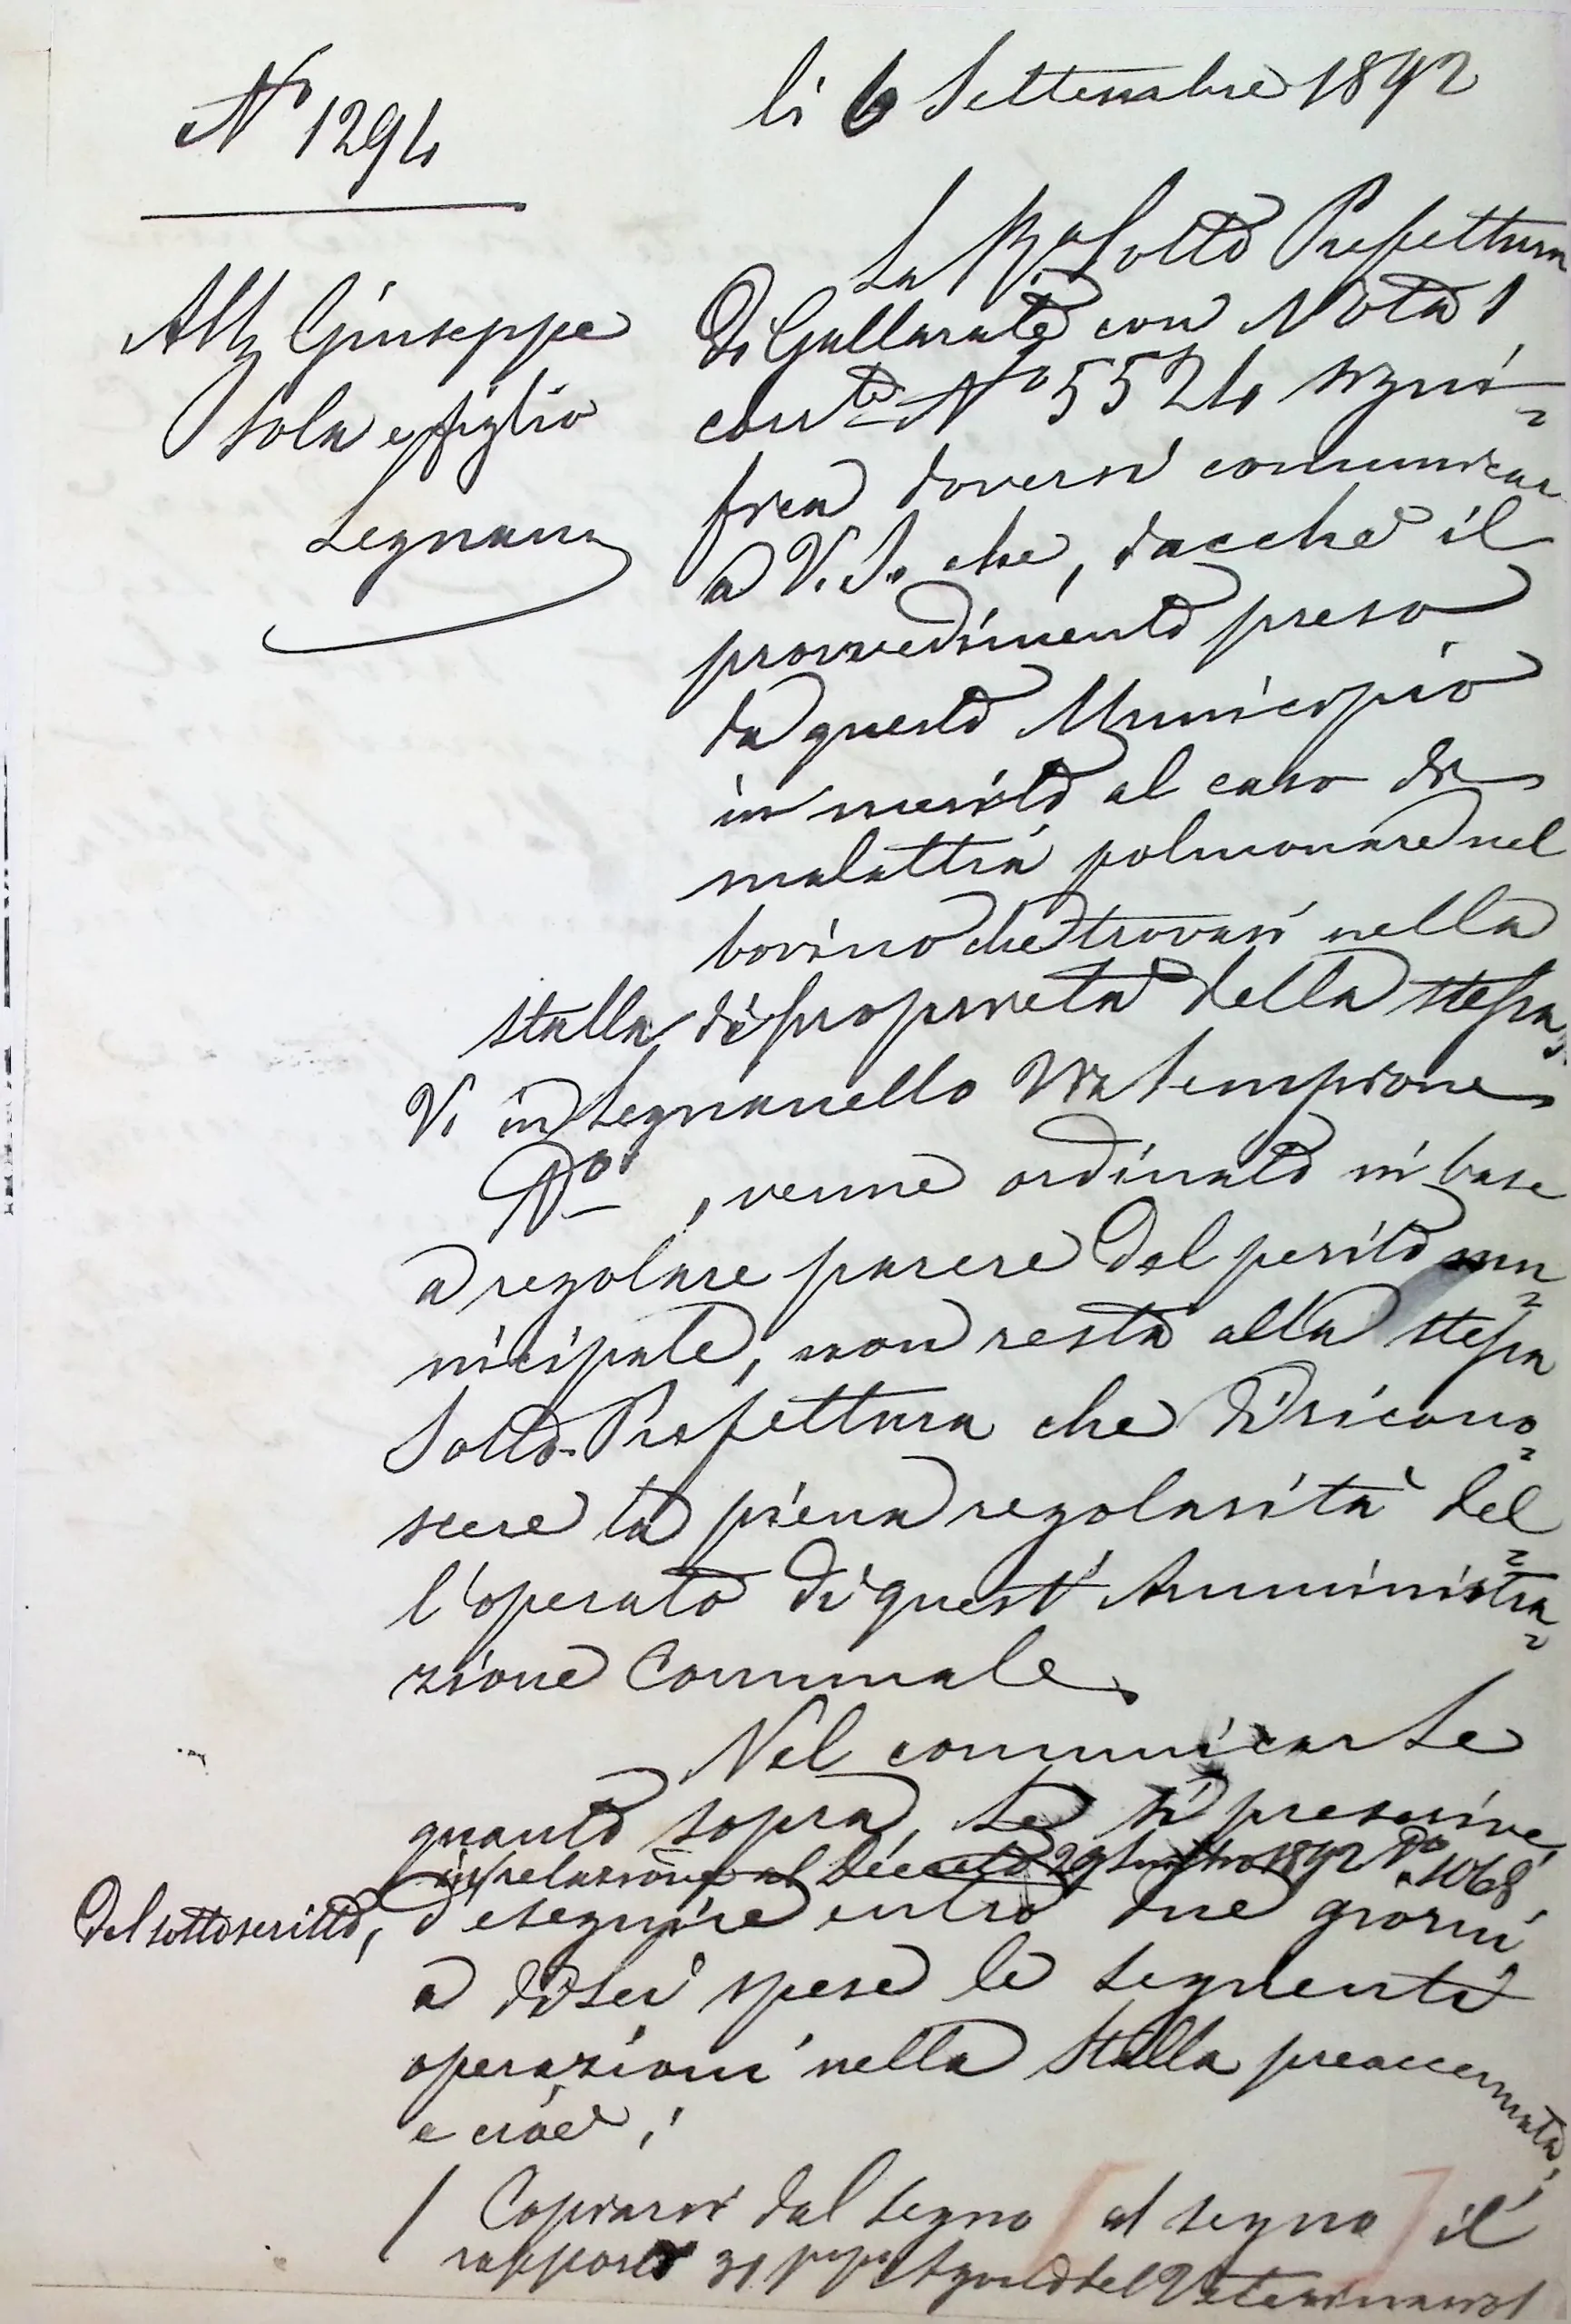 N° 1294
li 6 Settembre 1892
Giuseppe
Sola e figlio
Legnano
La R.a Sotto Prefettura
di Gallarate con Nota 1
corr.te N° 5524 signi=
fica doversi comunicar
a V.S. che, dacchè il
provvedimento preso
da questo Municipio
in merito al caso di
malattia polmonare nel
bovino che trovasi nella
stalla di proprietà della stessa
V. in Legnanello Via Sempione
N° , venne ordinato in base
a regolare parere del perito mu=
nicipale, non resta alla stessa
Sotto-Prefettura che di ricono=
scere la piena regolarità del=
l'operato di quest'Amministra=
zione Comunale.
Nel comunicarLe
quanto sopra, Le si prescrive,
in relazione al Decreto 29 1892 N° 1068
del sottoscritto, d'eseguire entro due giorni
a di Lei spese le seguenti
operazioni nella stalla preaccennata,
e cioè:
/ Copiarsi dal segno [ al segno ] il
rapporto 31 p.º p.º Agosto del Veterinario /